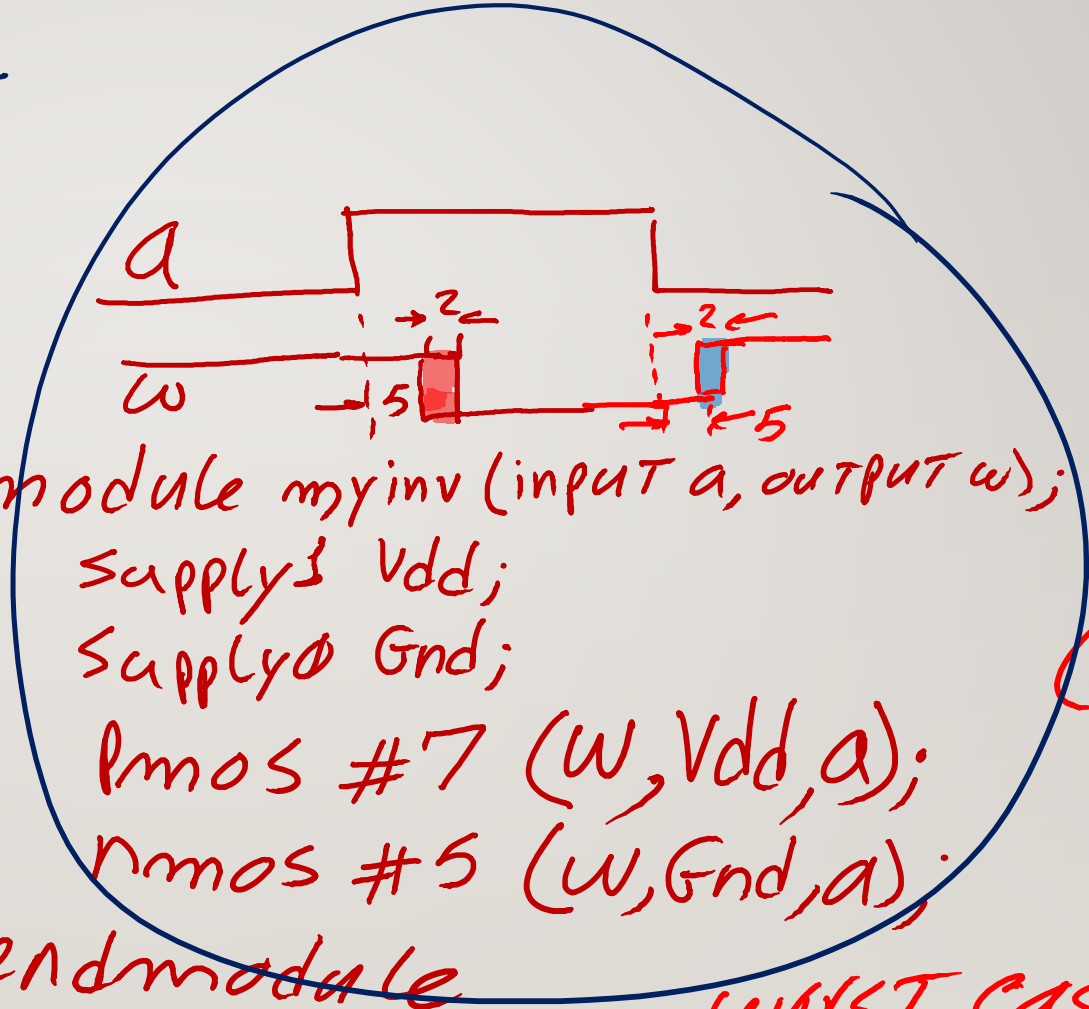 a
2
2
w
5
5
module myinv (input a, output w);
supply1 Vdd;
supply0 Gnd;
pmos #7 (w, Vdd, a);
nmos #5 (w, Gnd, a);
endmodule
worst cas